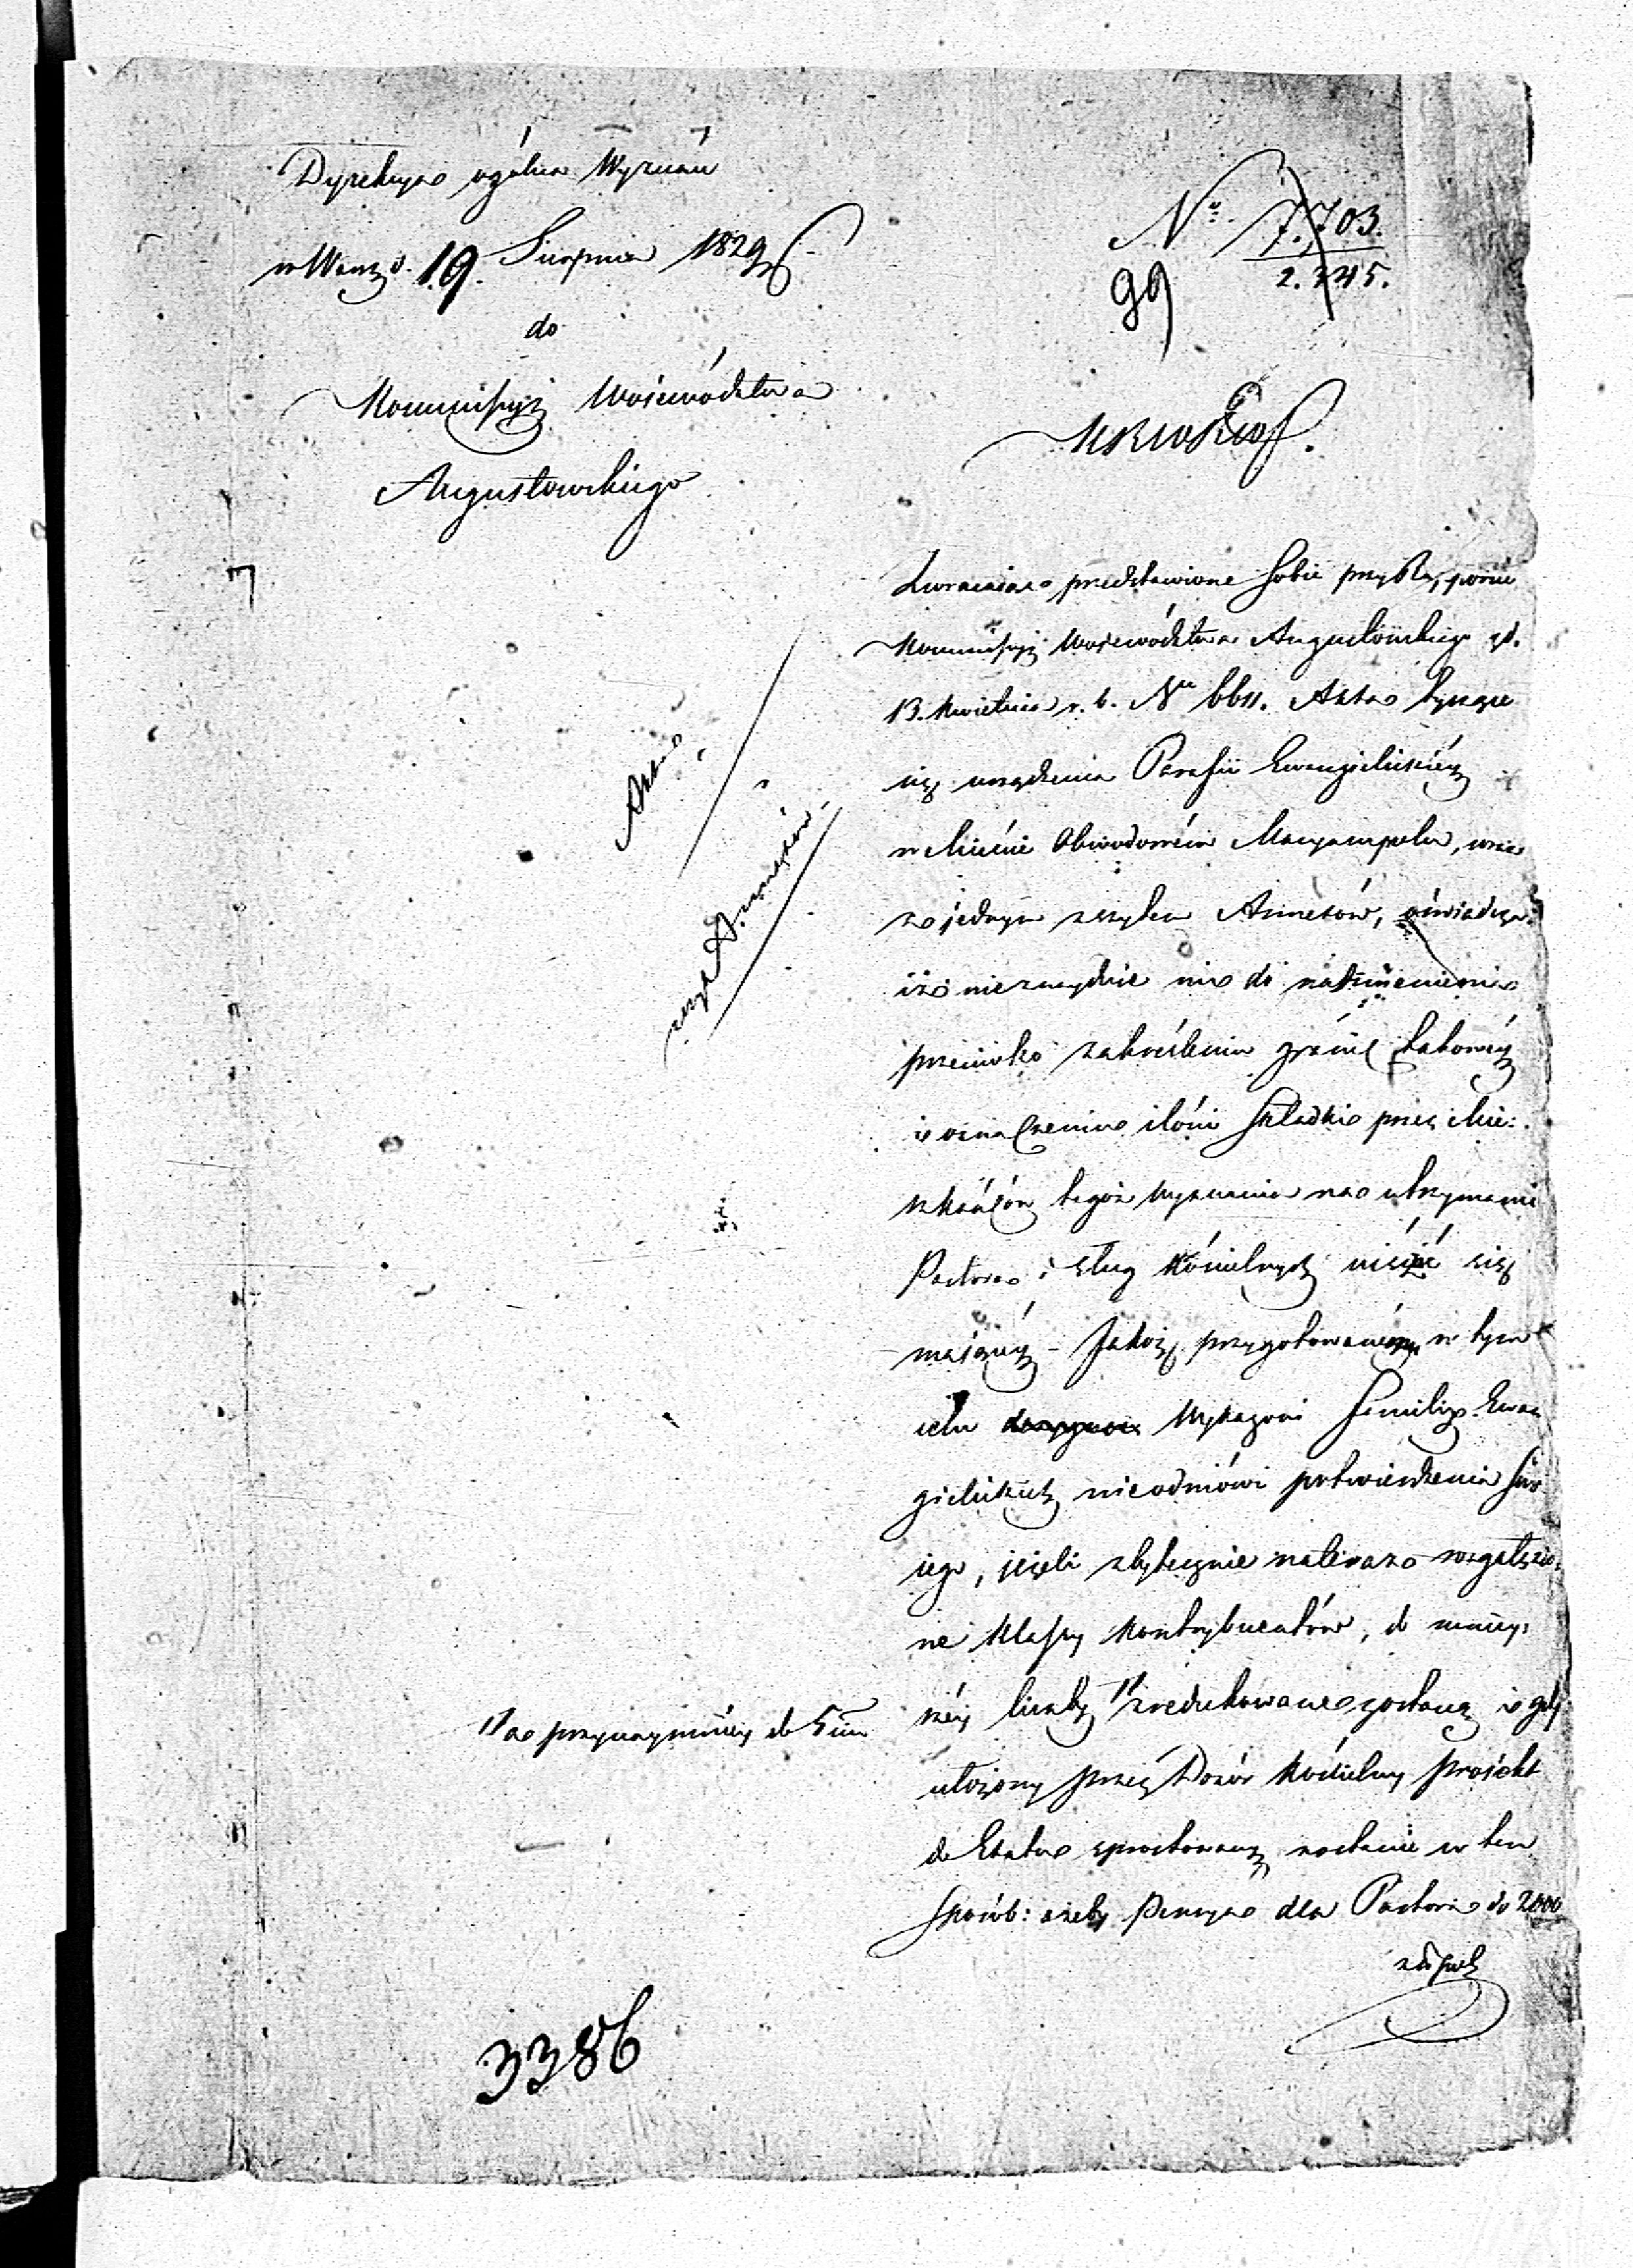 Dyrekcya ogólna Wyznań
w Warsz. d. 19. Sierpnia 1829
do
Kommissyi Województwa
Augustowskiego
No 7.703.
2.345.
99
MRWRiOP.
Zwracaiąc przedstawione sobie przy Rapporcie
Kommissyi Województwa Augustowskiego z d.
13. Kwietnia r. b. Nr 6611. Akta tyczące
się urządzenia Parafii Ewangielickiéy
w Mieście Obwodowém Maryampolu, wraz
z jednym zeszytem Annexów, oświadcza
iż nieznayduie nic do nadmienienia
przeciwko zakreśleniu granic takowéy
i oznaczeniu ilości składki przez Mie:
szkańców tegoż wyznania na utrzymanie
Pastora i sług kościelnych uiścić się
maiącéy - Jakoż przygotowanemu w tym
celu Wykazowi Familiy Ewan
gielickich nieodmówi potwierdzenia swo
iego, jeżeli zbytecznie nateraz rozgałęzio:
ne Klassy Kontrybuentów, do mniey:
széy liczby // zredukowane zostaną i gdy
// a przynaymniéy do 5ciu
ułożony przez Dozór Kościelny projekt
do Etatu sprostowany zostanie w ten
sposób: ażeby Pensya dla Pastora do 2000
Akta
zeszyt Annexów
3386